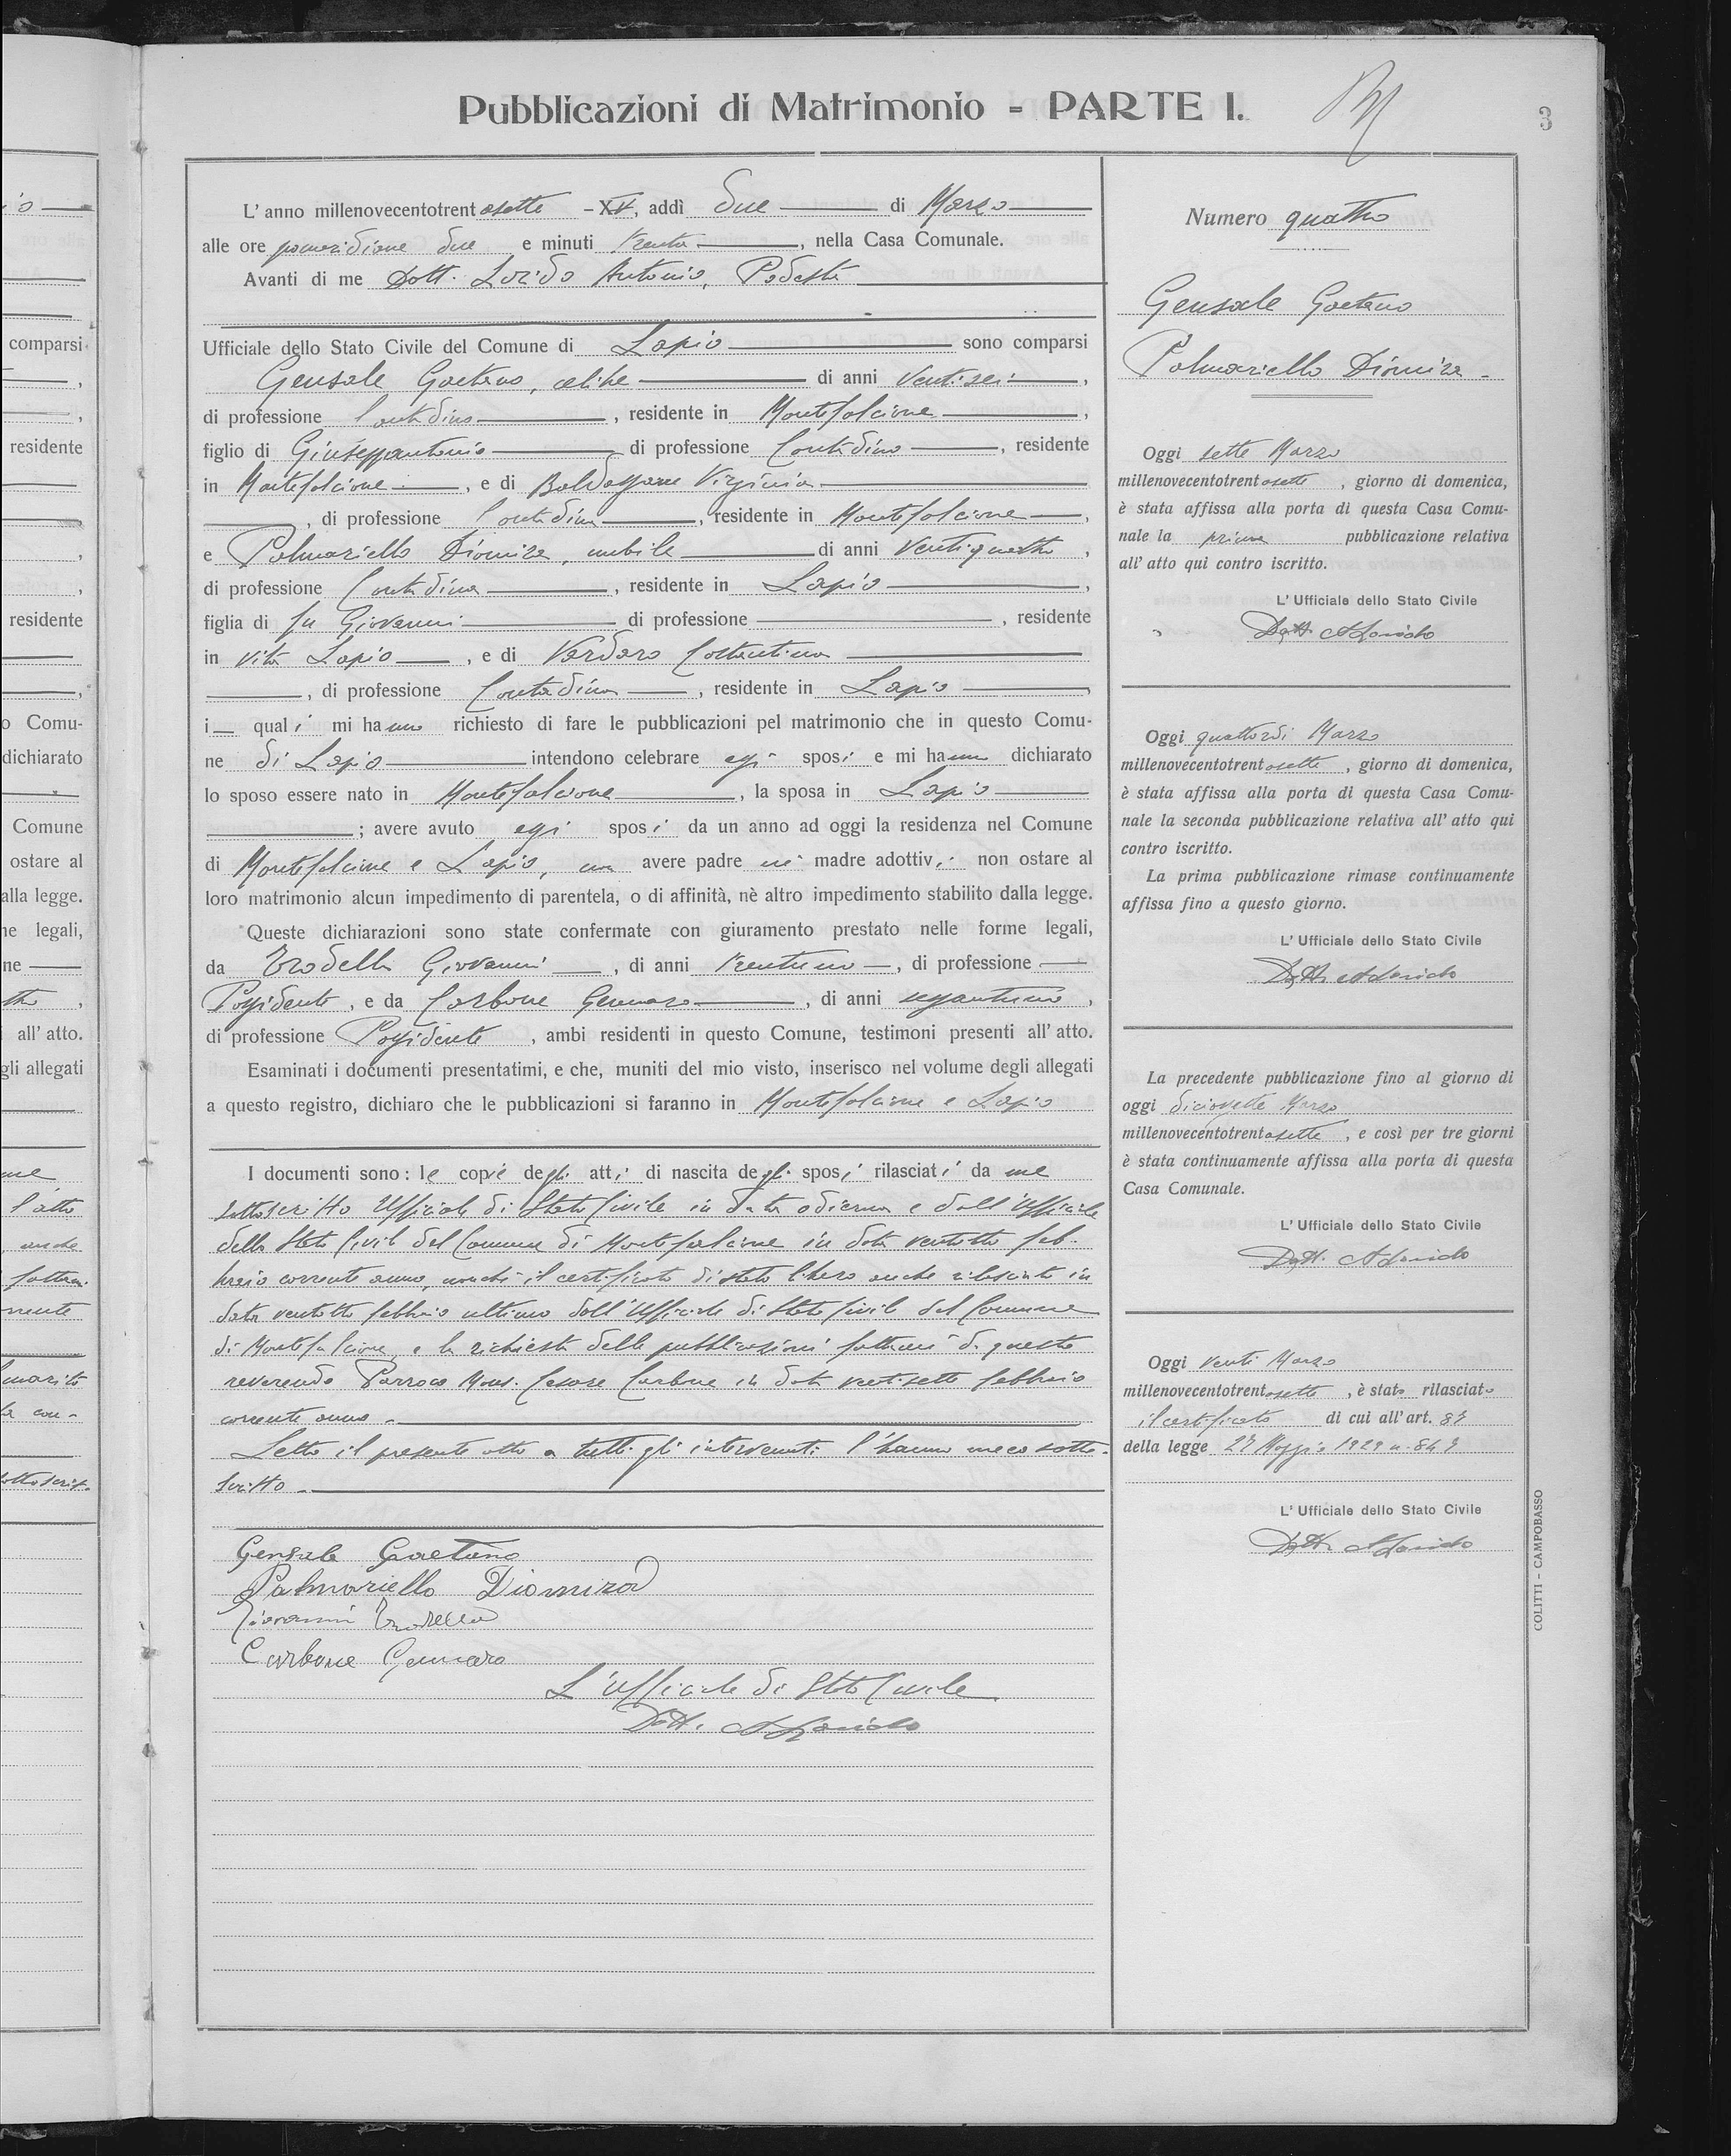 Pubblicazioni di Matrimonio - PARTE I.
3
L'anno millenovecentotrentasette -XV, addì due di Marzo
alle ore pomeridiane due e minuti trenta, nella Casa Comunale.
Avanti di me Dott. Lorido Antonio, Podestà
Ufficiale dello Stato Civile del Comune di Lapio sono comparsi
Gensale Gaetano, celibe di anni ventisei,
di professione Contadino, residente in Montefalcione,
figlio di Giuseppantonio di professione Contadino, residente
in Montefalcione, e di Baldassarre Virginia
, di professione Contadina, residente in Montefalcione,
e Palmariello Diomira, nubile di anni ventiquattro,
di professione Contadina, residente in Lapio,
figlia di fu Giovanni di professione , residente
in vita Lapio, e di Vardaro Costantina
, di professione Contadina, residente in Lapio,
i quali mi hanno richiesto di fare le pubblicazioni pel matrimonio che in questo Comu-
ne di Lapio intendono celebrare essi sposi e mi hanno dichiarato
lo sposo essere nato in Montefalcione, la sposa in Lapio
; avere avuto essi sposi da un anno ad oggi la residenza nel Comune
di Montefalcione e Lapio, non avere padre nè madre adottivi; non ostare al
loro matrimonio alcun impedimento di parentela, o di affinità, nè altro impedimento stabilito dalla legge.
Queste dichiarazioni sono state confermate con giuramento prestato nelle forme legali,
da Trodella Giovanni, di anni trentuno, di professione
Possidente, e da Carbone Gennaro, di anni sessantuno,
di professione Possidente, ambi residenti in questo Comune, testimoni presenti all'atto.
Esaminati i documenti presentatimi, e che, muniti del mio visto, inserisco nel volume degli allegati
a questo registro, dichiaro che le pubblicazioni si faranno in Montefalcione e Lapio
I documenti sono: le copie degli atti di nascita degli sposi rilasciati da me
sottoscritto Ufficiale di Stato Civile in data odierna e dall'Ufficiale
dello Stato Civile del Comune di Montefalcione in data ventotto feb-
braio corrente anno, nonchè il certificato di stato libero anche rilasciato in
data ventotto febbraio ultimo dall'Ufficiale di Stato Civile del Comune
di Montefalcione, e la richiesta delle pubblicazioni fattami da questo
reverendo Parroco Mons. Cesare Carbone in data ventisette febbraio
corrente anno.
Letto il presente atto a tutti gli intervenuti l'hanno meco sotto-
scritto.
Gensale Gaetano
Palmariello Diomira
Giovanni Trodella
Carbone Gennaro
L'Ufficiale di Stato Civile
Dott. A Lorido
Numero quattro
Gensale Gaetano
Palmariello Diomira
Oggi sette Marzo
millenovecentotrentasette, giorno di domenica,
è stata affissa alla porta di questa Casa Comu-
nale la prima pubblicazione relativa
all'atto qui contro iscritto.
L'Ufficiale dello Stato Civile
Dott. A Lorido
Oggi quattordi Marzo
millenovecentotrentasette, giorno di domenica,
è stata affissa alla porta di questa Casa Comu-
nale la seconda pubblicazione relativa all'atto qui
contro iscritto.
La prima pubblicazione rimase continuamente
affissa fino a questo giorno.
L'Ufficiale dello Stato Civile
Dott. A Lorido
La precedente pubblicazione fino al giorno di
oggi diciassette Marzo
millenovecentotrentasette, e così per tre giorni
è stata continuamente affissa alla porta di questa
Casa Comunale.
L'Ufficiale dello Stato Civile
Dott. A Lorido
Oggi venti Marzo
millenovecentotrentasette, è stato rilasciato
il certificato di cui all'art.
della legge 27 Maggio 1929 n. 847
L'Ufficiale dello Stato Civile
Dott. A Lorido
COLITTI - CAMPOBASSO
comparsi
residente
residente
o Comu-
dichiarato
Comune
ostare al
alla legge.
ne legali,
ne
all'atto.
gli allegati
me
l'atto
anche
marito